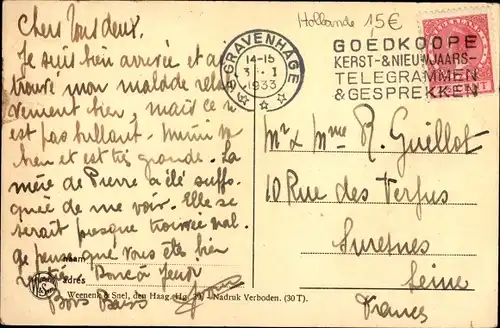 Chers tous deux.
Je suis bien arrivée et ai
trouvé mon malade
vement bien, mais ce n
est pas brillant. Mimi
bien et est très grande. La
mère de Pierre a été suffo-
quée de me voir. Elle se
serait presque trouvée mal.
Je pense que vous êtes bien
Bons
naam
adres
Weenenk & Snel, den Haag. Nadruk Verboden. (30T).
Hollande 15€
'S GRAVENHAGE
14-15
3 . I
1933
GOEDKOOPE
KERST-&NIEUWJAARS-
TELEGRAMMEN
& GESPREKKEN
Mr & Mme R. Guillot
10 Rue des Verjus
Suresnes
Seine
France